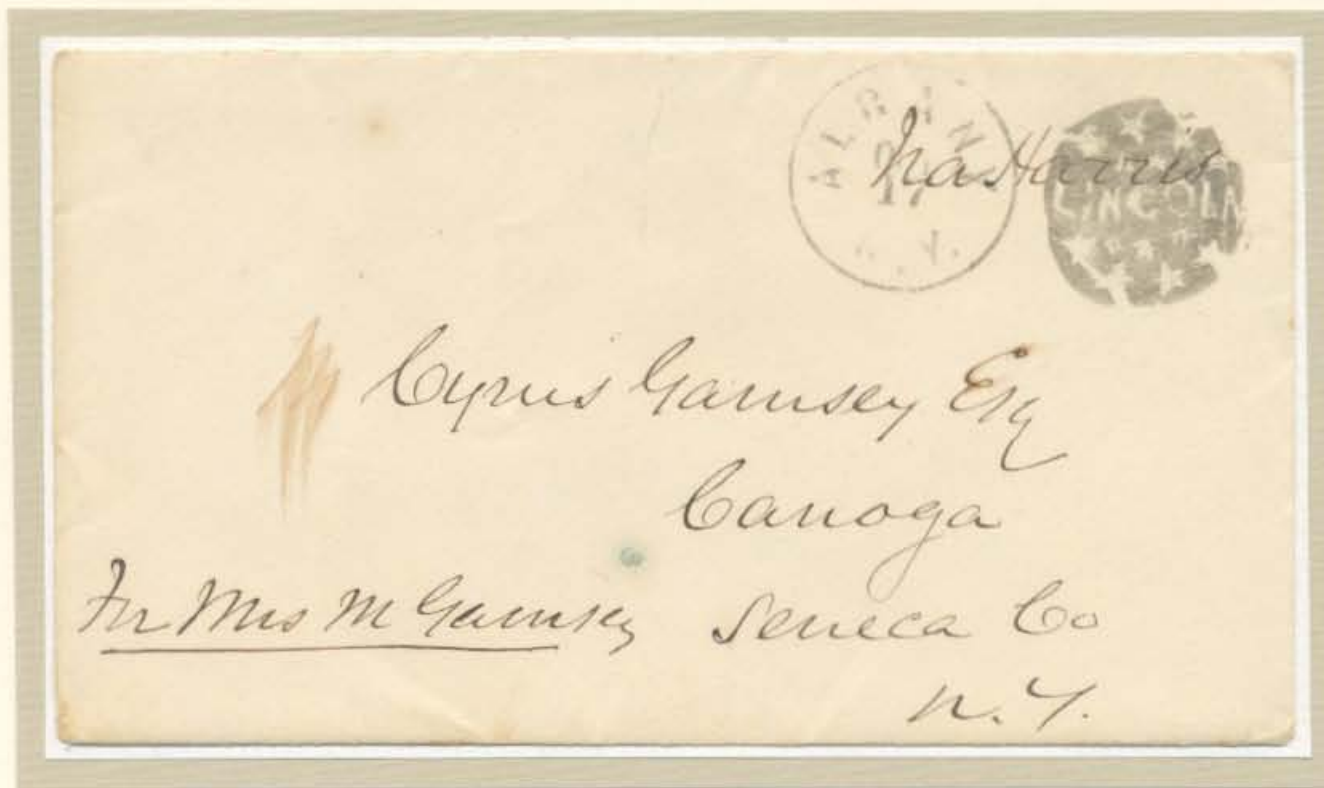 ALBANY
17
N.Y.
Ira Harris
LINCOLN
Cyrus Garnsey Esq
Canoga
For Mrs M Garnsey Seneca Co
N.Y.